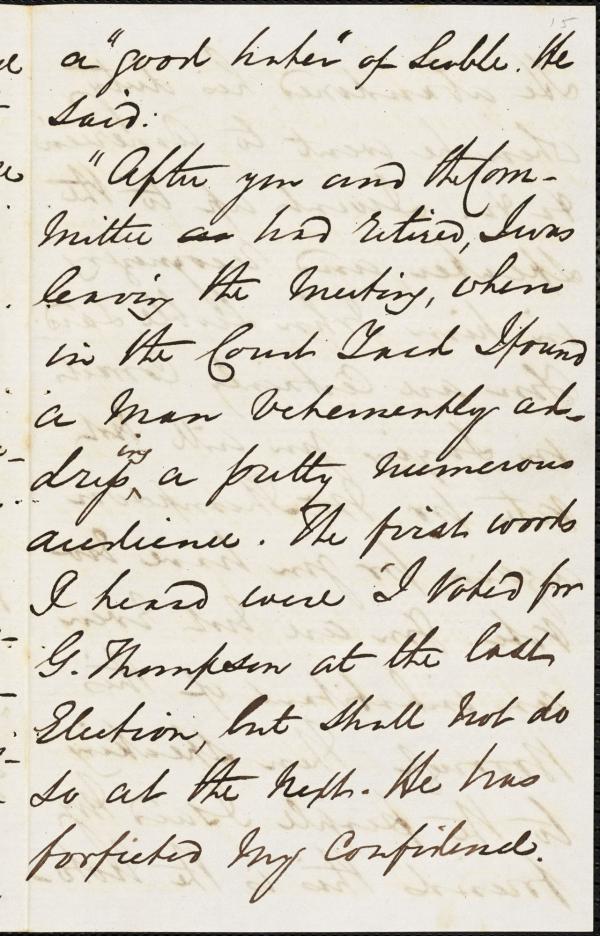 15
a "good hater" of Scoble. He
said:
"After you and the Com-
mittee as had retired, I was
leaving the Meeting, when
in the Court Yard I found
a Man vehemently ad-
dressing a pretty numerous
audience. The first words
I heard were 'I voted for
G. Thompson at the last
Election, but shall not do
so at the next. He has
forfieted my confidence.